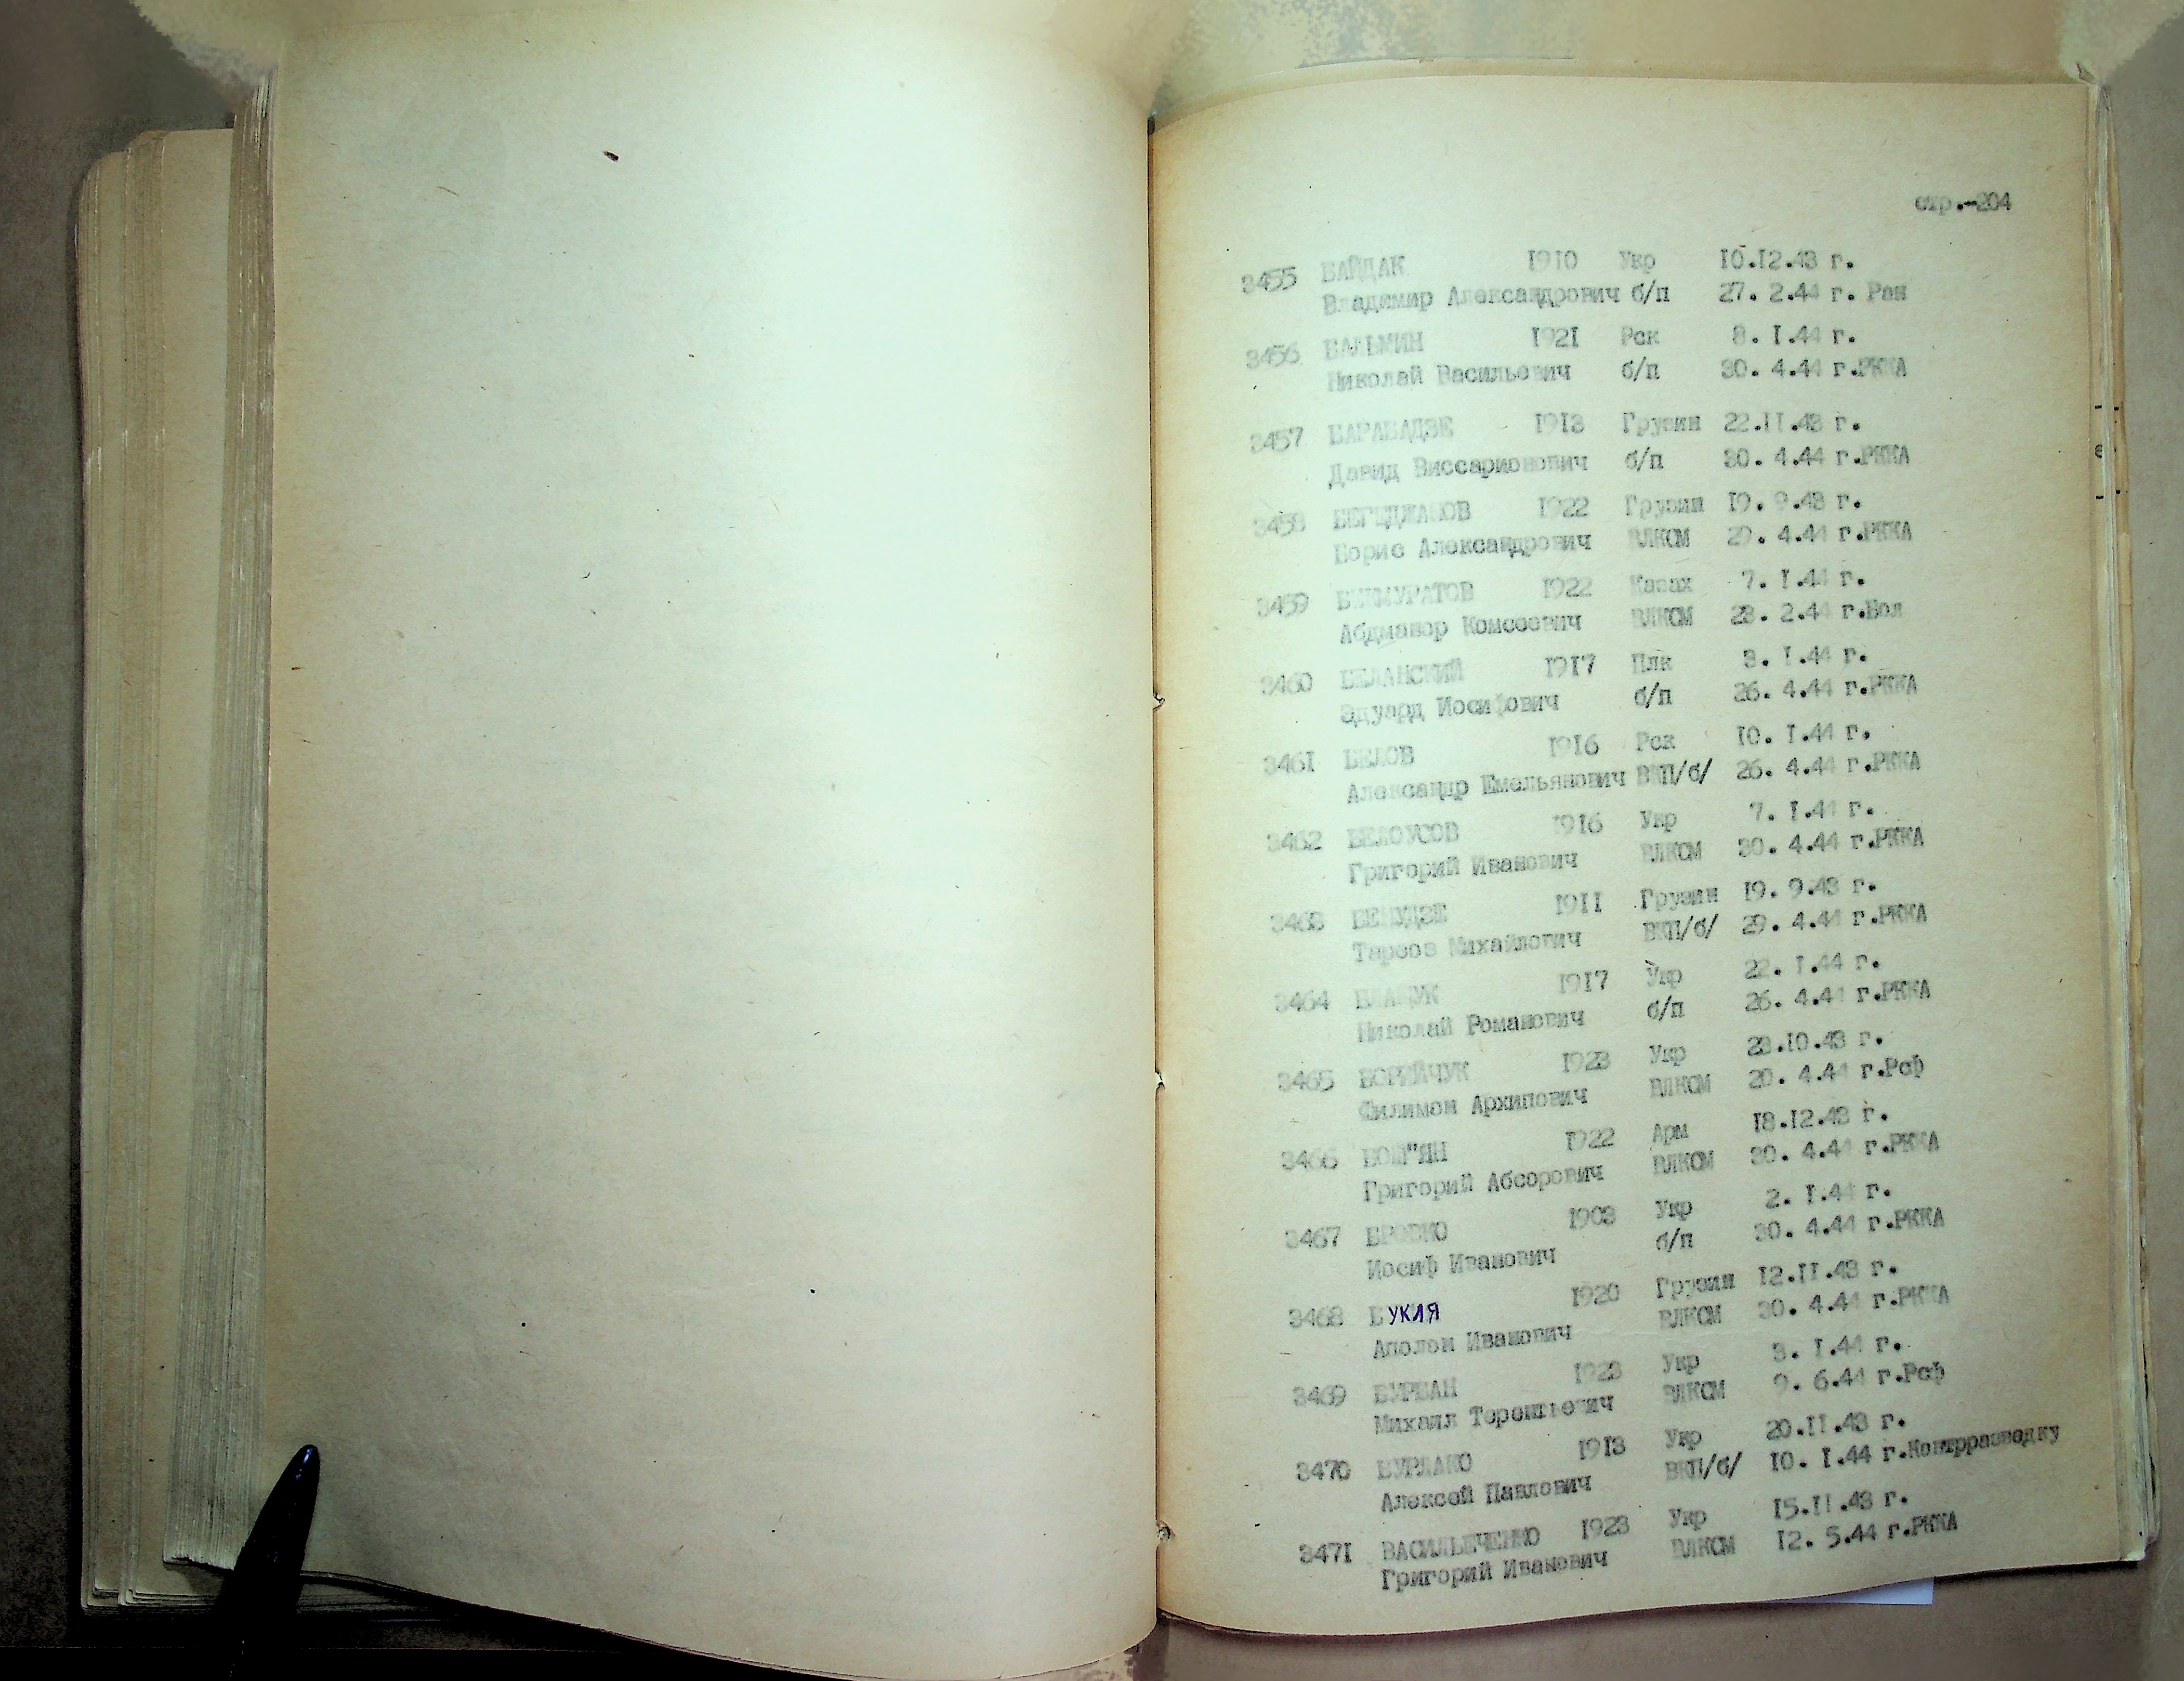 стр.-204
3455 БАЙДАК 1910 Укр 10.12.43 г.
Владимир Александрович б/п 27. 2.44 г. Ран
3456 БАЛЬМИН 1921 Рск 8. 1.44 г.
Николай Васильевич б/п 30. 4.44 г.РККА
3457 БАРАБАДЗЕ 1913 Грузин 22.11.43 г.
Давид Виссарионович б/п 30. 4.44 г.РККА
3458 1922 Грузин 19. 9.43 г.
Борис Александрович ВЛКСМ 29. 4.44 г.РККА
3459 БЕКМУРАТОВ 1922 Казах 7. 1.44 г.
Абдманор Комсеевич ВЛКСМ 28. 2.44 г.Бол
3460 БЕЛАНСКИЙ 1917 Плк 3. 1.44 г.
Эдуард Иосифович б/п 26. 4.44 г.РККА
3461 БЕЛОВ 1916 Рск 10. 1.44 г.
Александр Емельянович ВКП/б/ 26. 4.44 г.РККА
3462 БЕЛОУСОВ 1916 Укр 7. 1.44 г.
Григорий Иванович ВЛКСМ 30. 4.44 г.РККА
3463 1911 Грузин 19. 9.43 г.
Михайлович ВКП/б/ 29. 4.44 г.РККА
3464 1917 Укр 22. 1.44 г.
Николай Романович б/п 26. 4.44 г.РККА
3465 БОРИЙЧУК 1923 Укр 23.10.43 г.
Филимон Архипович ВЛКСМ 20. 4.44 г.Рсф
3466 1922 Арм 18.12.43 г.
Григорий Абсорович ВЛКСМ 30. 4.44 г.РККА
3467 БРОВКО 1903 Укр 2. 1.44 г.
Иосиф Иванович б/п 30. 4.44 г.РККА
3468 БУКИЯ 1920 Грузин 12.11.43 г.
Аполон Иванович ВЛКСМ 30. 4.44 г.РККА
3469 БУРБАН 1923 Укр 3. 1.44 г.
Михаил Терентьевич ВЛКСМ 9. 6.44 г.Рсф
3470 БУРЛАКО 1913 Укр 20.11.43 г.
Алексей Павлович ВКП/б/ 10. 1.44 г.Контрразведку
3471 ВАСИЛЬЧЕНКО 1923 Укр 15.11.43 г.
Григорий Иванович ВЛКСМ 12. 5.44 г.РККА